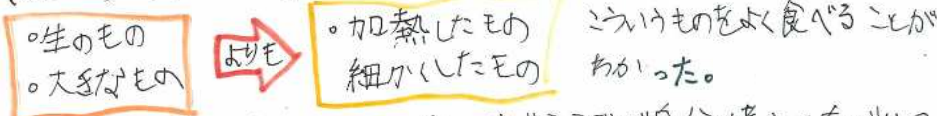 ○生のもの
○大きなもの
よりも
○加熱したもの
細かくしたもの
こういうものをよく食べることが
わかった。